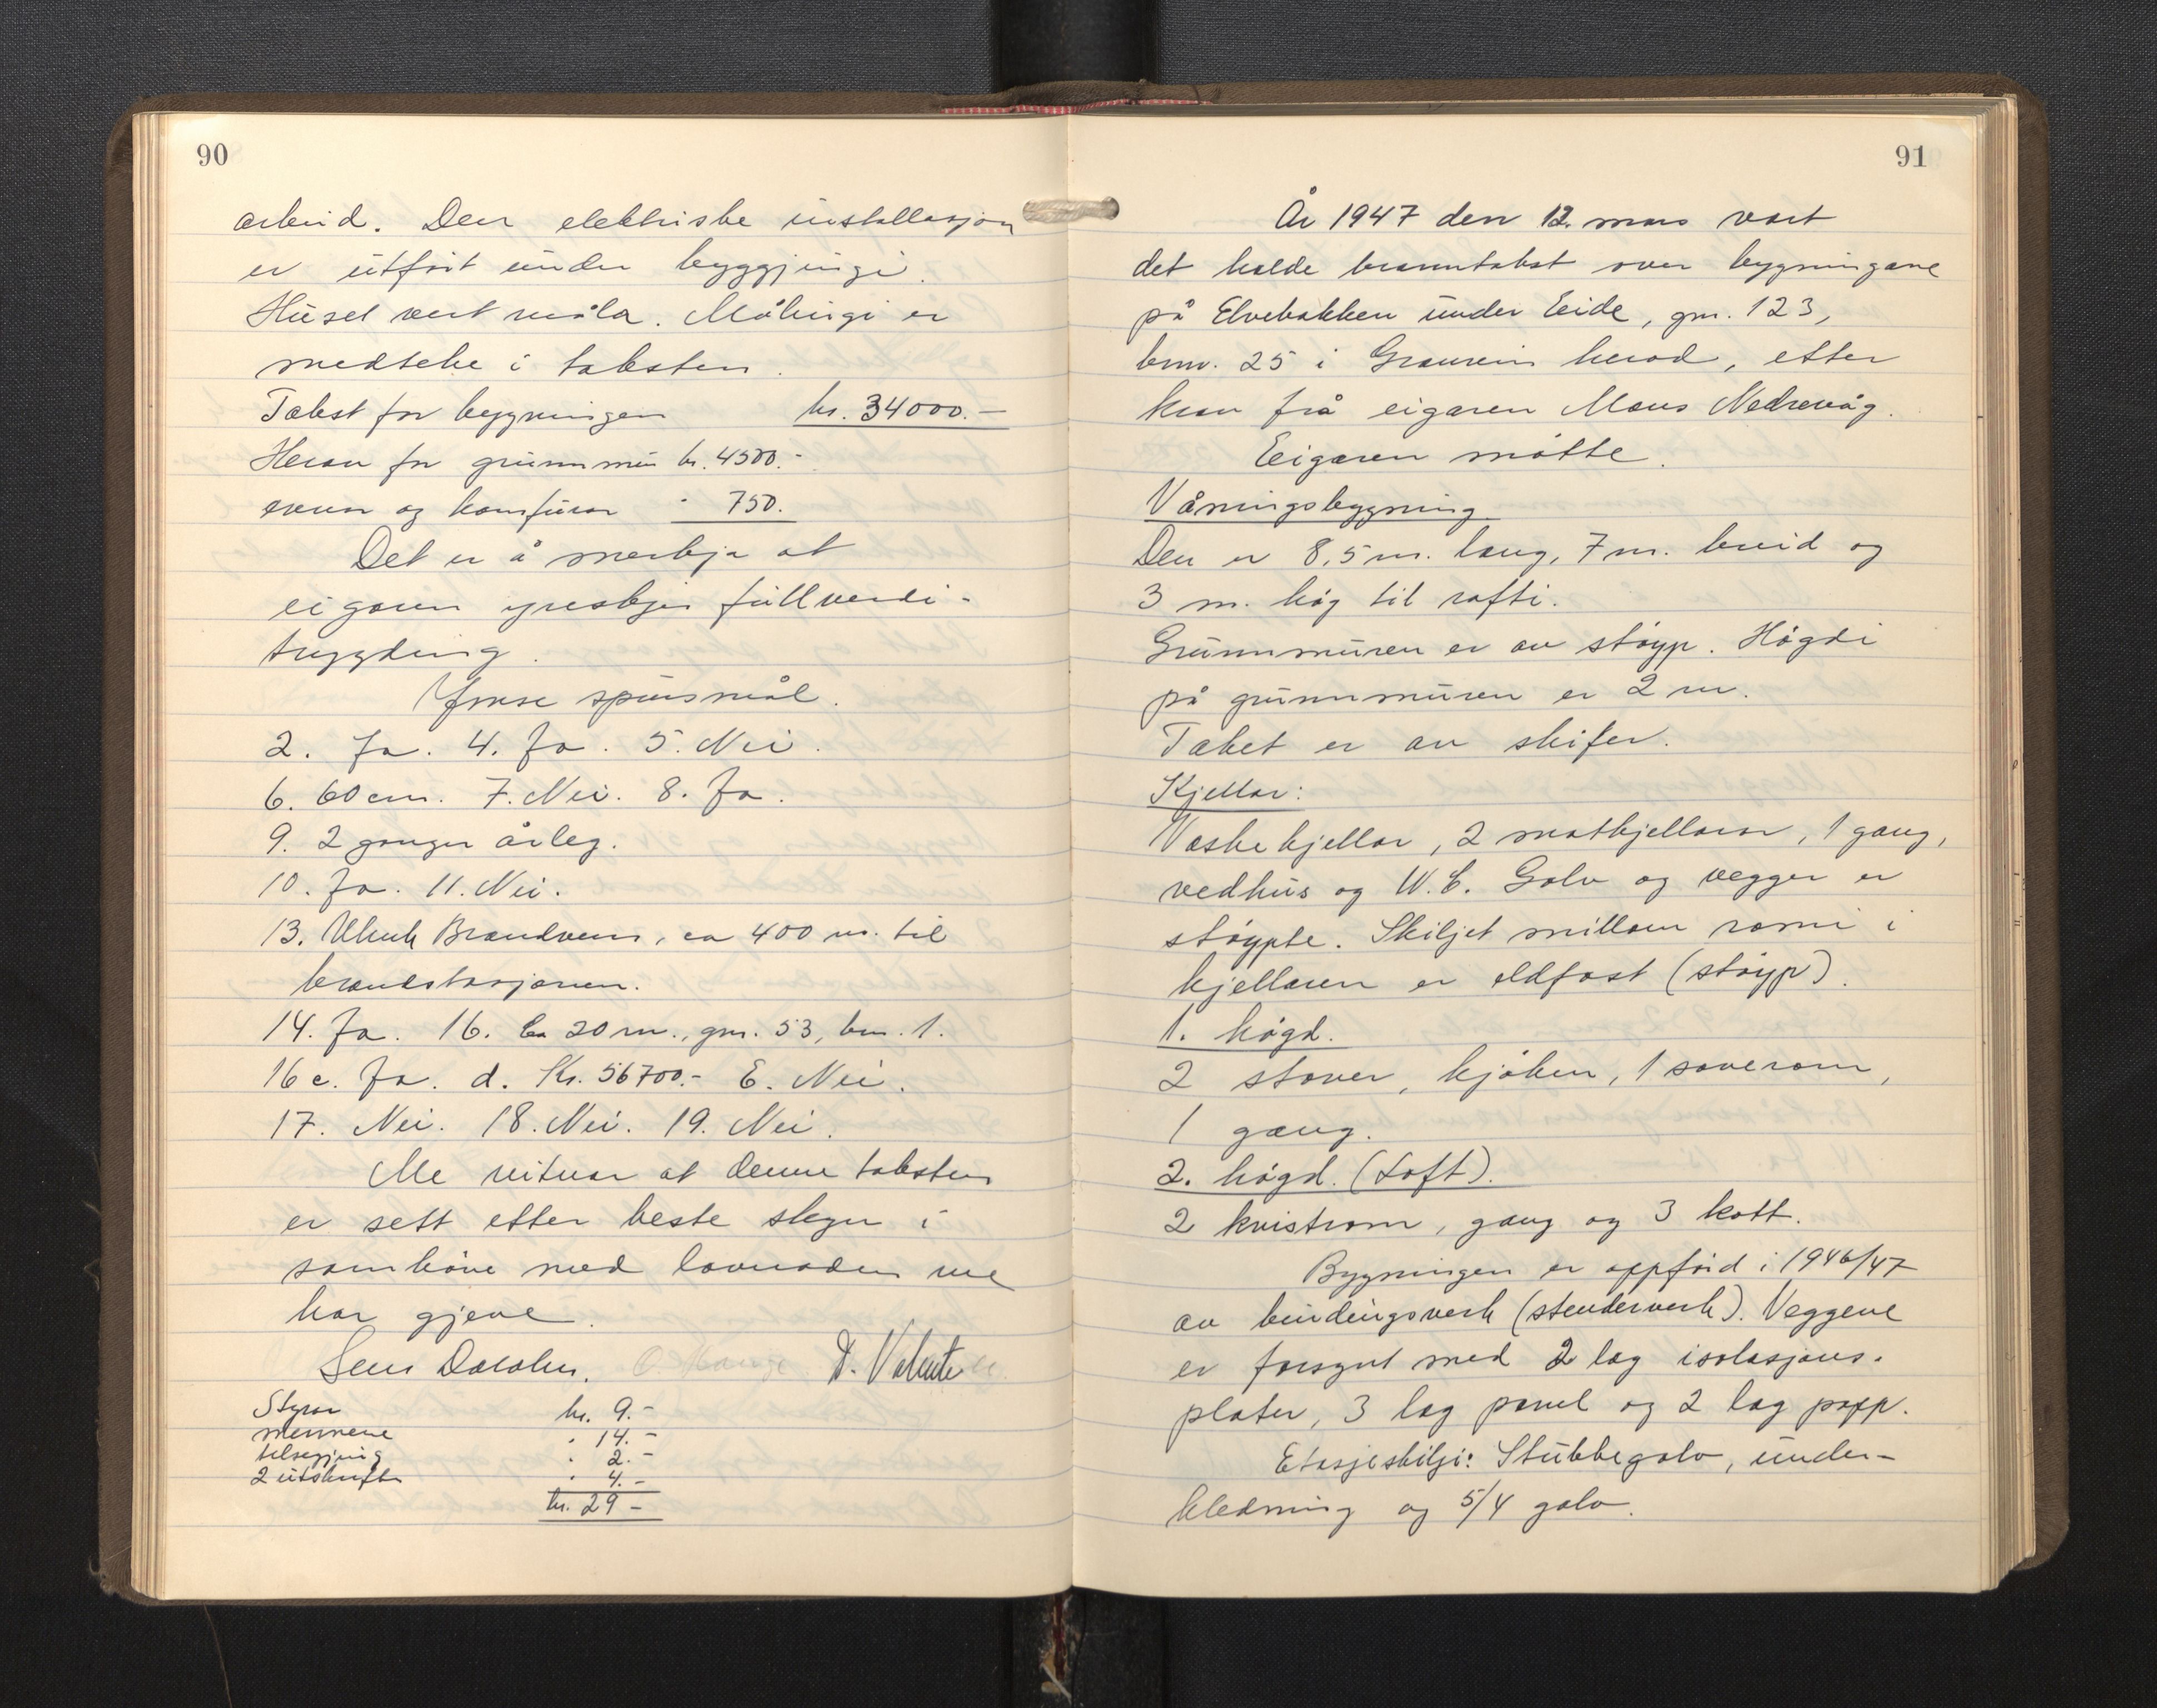 90
arbeid. Den elektriske installasjon
er utført under byggjingi.
Huset vert måla. Målingi er
medteke i taksten.
Takst for bygningen kr. 34000.-
Herav for grunnmur kr. 4500.-
ovnar og komfurar " 750.
Det er å merkja at
eigaren ynskjer fullverdi-
trygding.
Ymse spursmål.
2. Ja. 4. Ja. 5. Nei.
6. 60 cm. 7. Nei. 8. Ja.
9. 2 gonger årleg.
10. Ja. 11. Nei.
13. Ulvik Brandvern, ca 400 m. til
brandstasjonen.
14. Ja. 16. Ca 20 m., gnr. 53, bnr. 1.
16 c. Ja. d. Kr. 56700.- E. Nei.
17. Nei. 18. Nei. 19. Nei.
Me vitnar at denne taksten
er sett etter beste skyn i
samhøve med lovnaden me
har gjeve.
Lens
Styrar kr. 9.-
mennene " 14.-
tilsegjing " 2.-
2 utskrifter " 4.-
kr. 29 -
91
År 1947 den 12. mars vart
det halde branntakst over bygningane
på Elvebakken under Eide, gnr. 123,
bnr. 25 i Granvin herad, etter
krav frå eigaren Mons Nedrevåg.
Eigaren møtte.
Våningsbygning
Den er 8,5 m. lang, 7 m. breid og
3 m. høg til rafti.
Grunnmuren er av støyp. Høgdi
på grunnmuren er 2 m.
Taket er av skifer.
Kjellar:
Vaskekjellar, 2 matkjellarar, 1 gang,
vedhus og W.C. Golv og vegger er
støypte. Skiljet millom romi i
kjellaren er eldfast (støyp).
1. høgd.
2 stover, kjøken, 1 soverom,
1 gang.
2. høgd. (Loft).
2 kvistrom, gang og 3 kott.
Bygningen er oppførd i 1946/47
av bindingsverk (stenderverk). Veggene
er forsynt med 2 lag isolasjons-
plater, 3 lag panel og 2 lag papp.
Etasjeskilje: Stubbegolv, under-
kledning og 5/4 golv.